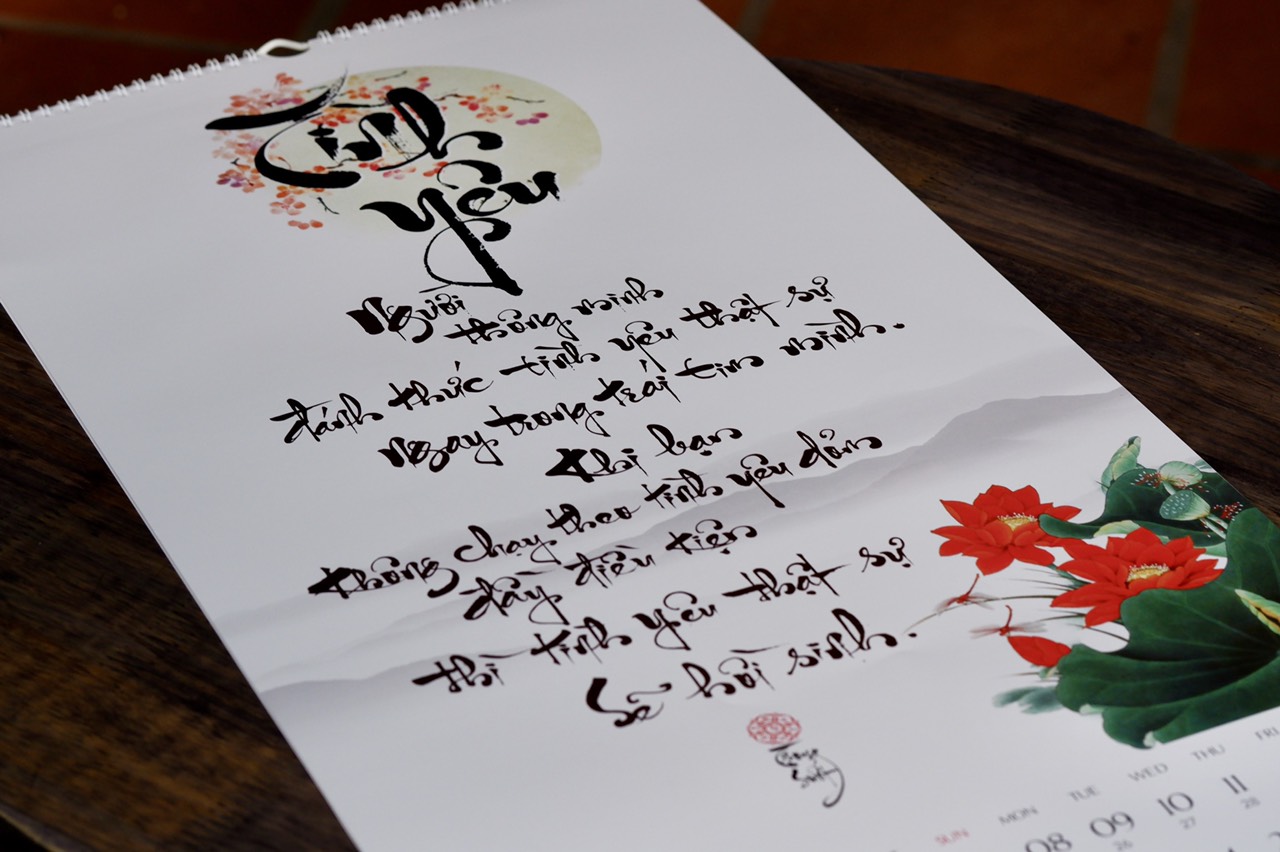 Tình
yêu
Người
thông minh
đánh thức tình yêu thật sự
ngay trong trái tim mình.
Khi bạn
không chạy theo tình yêu
đầy điều kiện
thì tình yêu thật sự
sẽ hồi sinh.
SUN MON TUE WED THU FRI
08 09 10 11
26 27 28